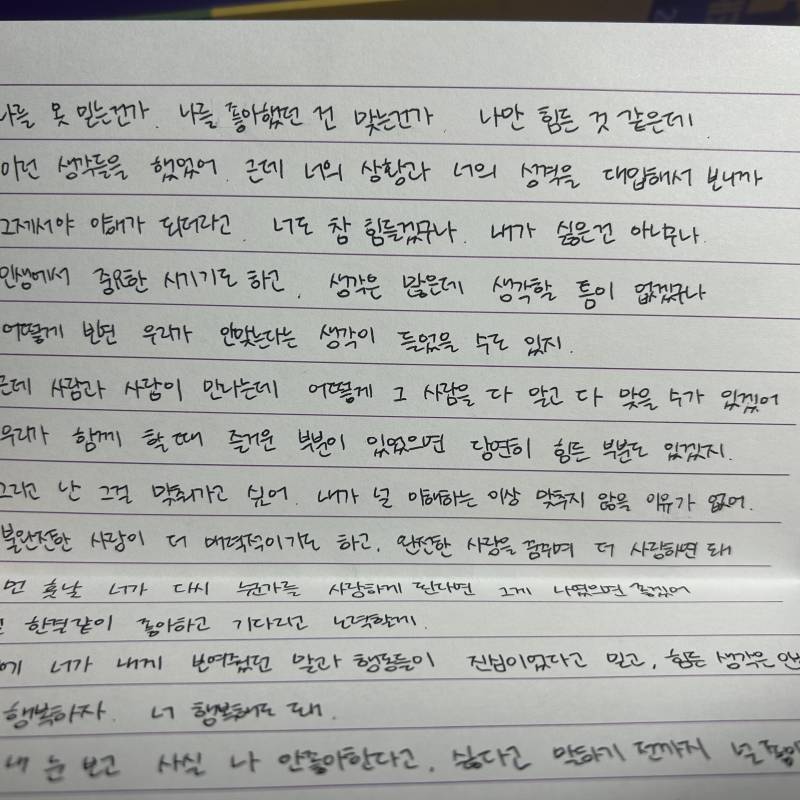 나를 못 믿는건가. 나를 좋아했던 건 맞는건가. 나만 힘든 것 같은데.
이런 생각들을 했었어. 근데 너의 상황과 너의 성격을 대입해서 보니까
그제서야 이해가 되더라고. 너도 참 힘들겠구나. 내가 싫은건 아니구나.
인생에서 중요한 시기기도 하고. 생각은 많은데 생각할 틈이 없겠구나
어떻게 보면 우리가 안맞는다는 생각이 들었을 수도 있지.
근데 사람과 사람이 만나는데 어떻게 그 사람을 다 알고 다 맞을 수가 있겠어
우리가 함께 할 때 즐거운 부분이 있었으면 당연히 힘든 부분도 있겠지.
그리고 난 그걸 맞춰가고 싶어. 내가 널 이해하는 이상 맞추지 않을 이유가 없어.
불완전한 사랑이 더 매력적이기도 하고, 완전한 사랑을 꿈꾸며 더 사랑하면 돼
먼 훗날 너가 다시 누군가를 사랑하게 된다면 그게 나였으면 좋겠어
한결같이 좋아하고 기다리고 노력할게.
에 너가 내게 보여줬던 말과 행동들이 진심이었다고 믿고, 힘든 생각은
행복하자. 너 행복해도 돼.
내 눈 보고 사실 나 안좋아한다고, 싫다고 말하기 전까지 널